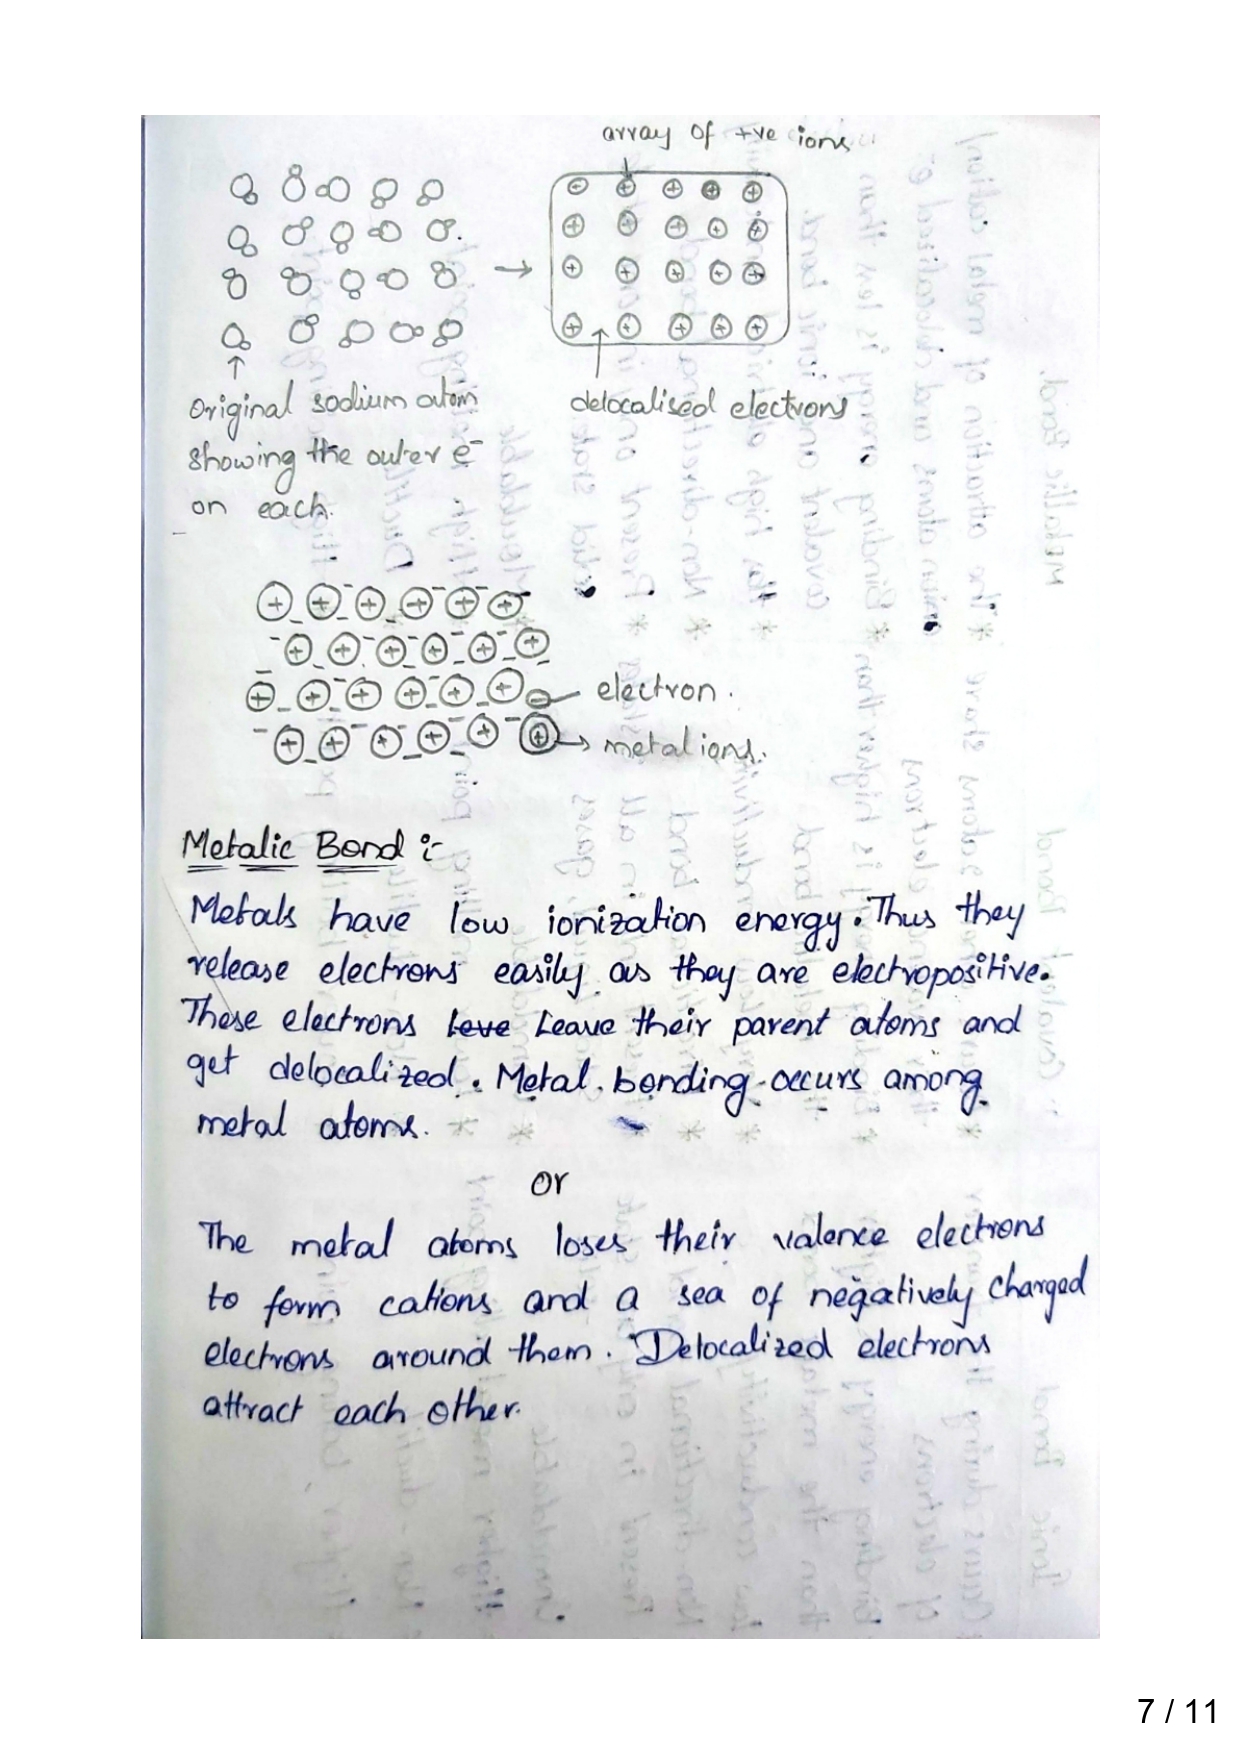 array of +ve ions
Original sodium atom
showing the outer e⁻
on each.
delocalised electrons
electron.
metal ions.
Metalic Bond :-
Metals have low ionization energy. Thus they
release electrons easily as they are electropositive.
These electrons leve Leave their parent atoms and
get delocalized. Metal bonding occurs among
metal atoms.
or
The metal atoms loses their valence electrons
to form cations and a sea of negatively charged
electrons around them. Delocalized electrons
attract each other.
7 / 11